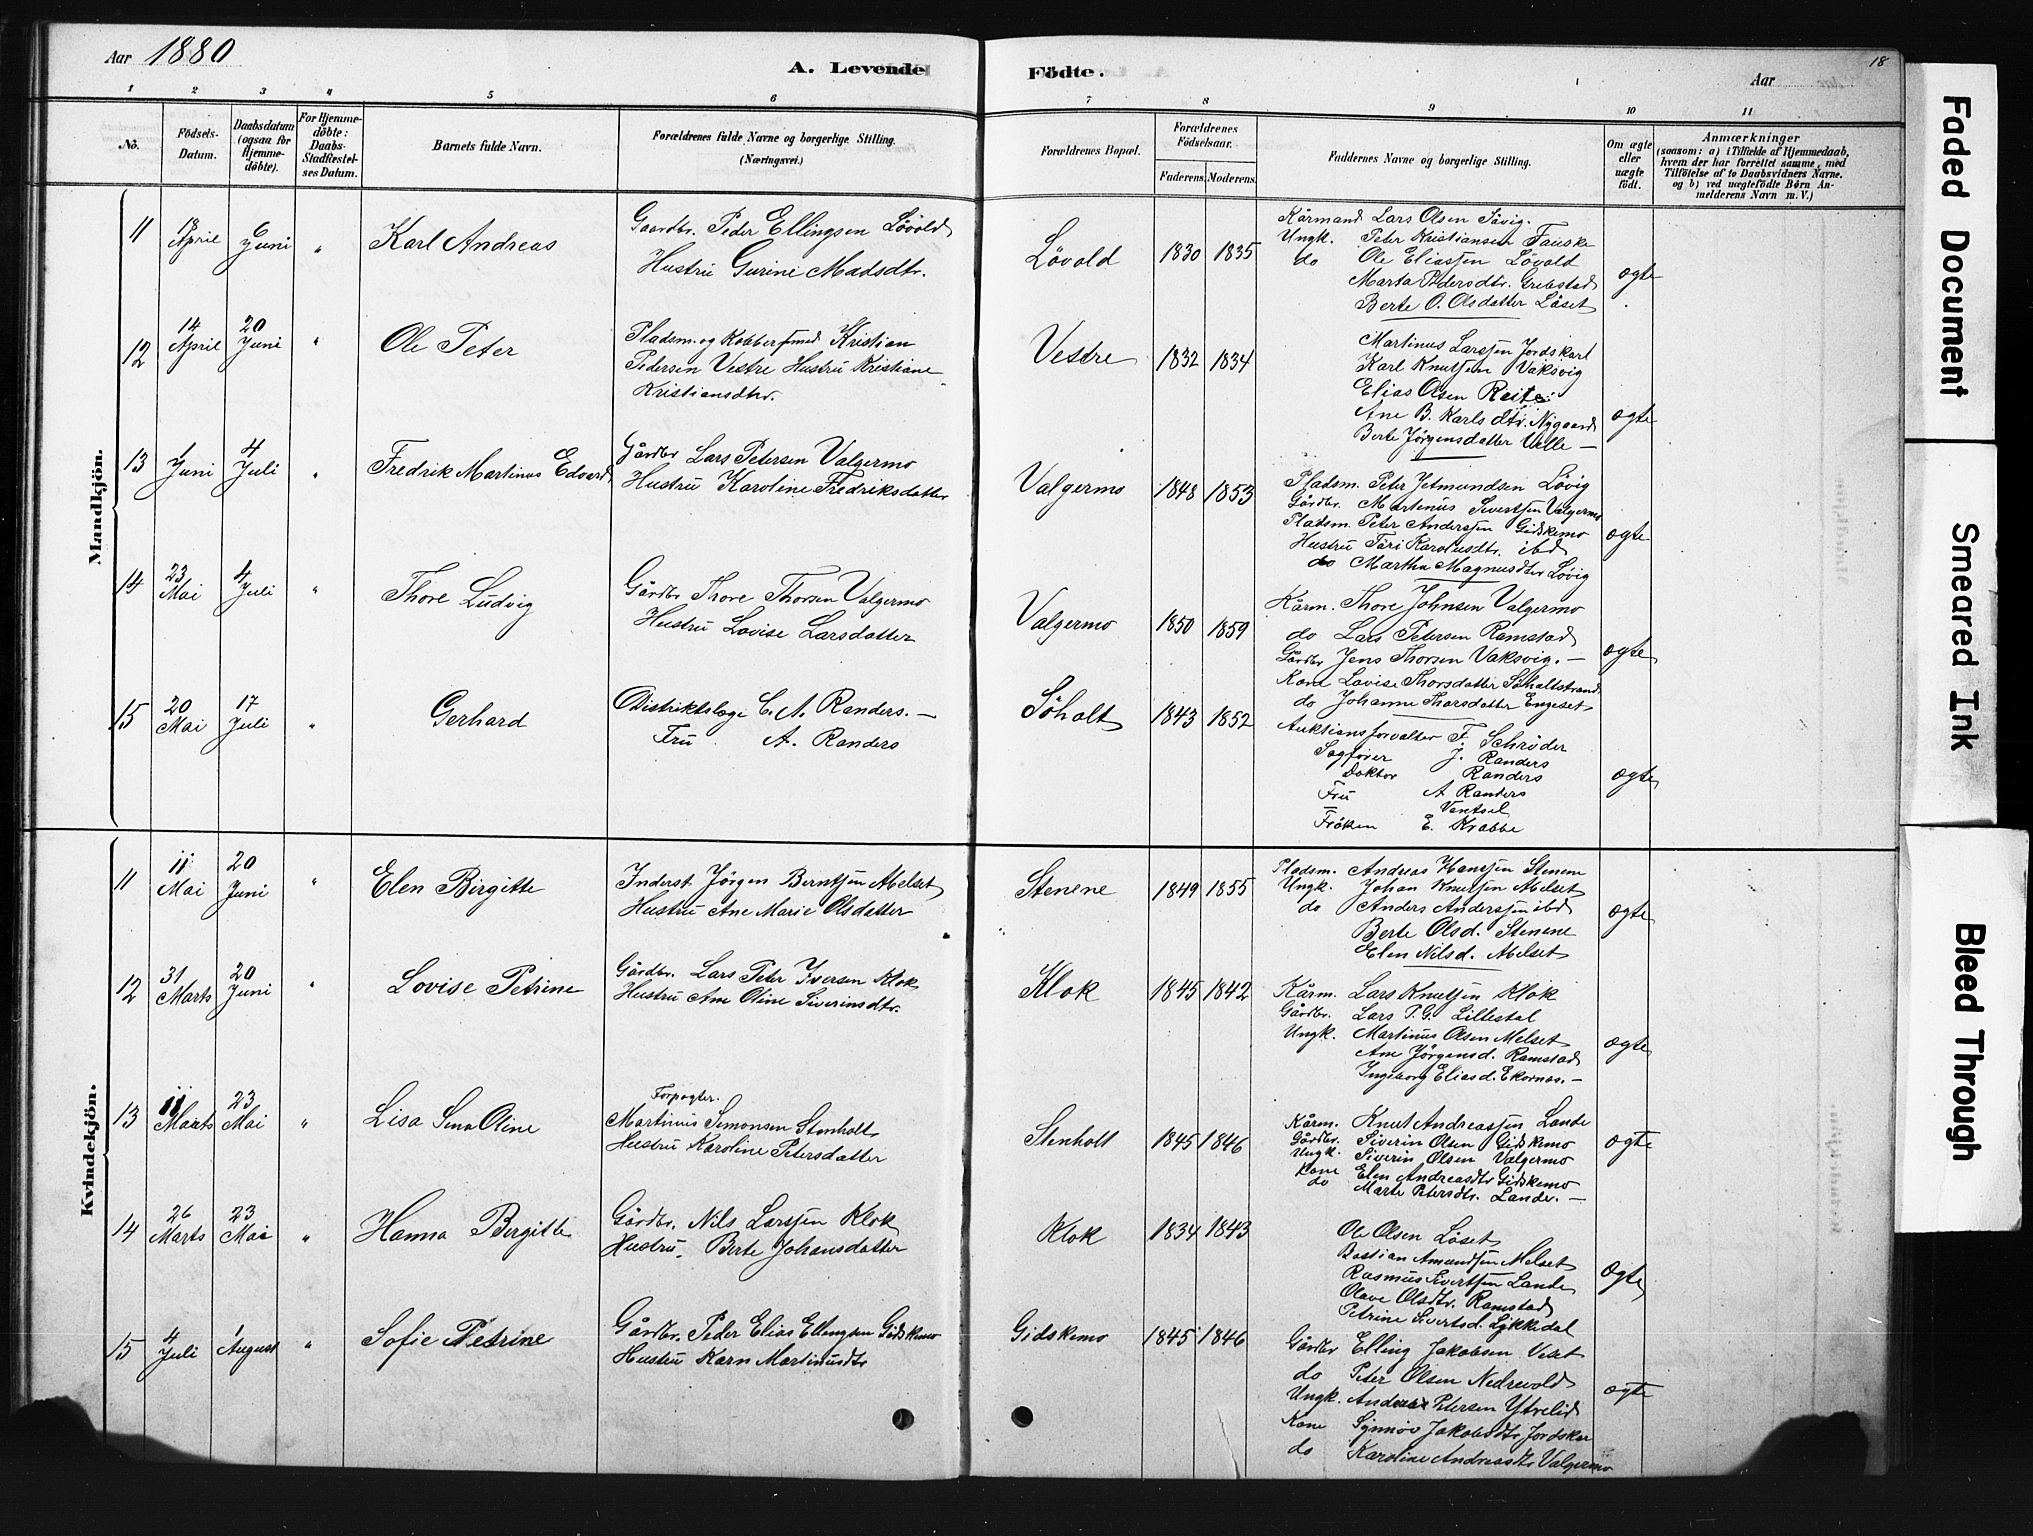 Aar 1880
A. Levende Födte.
Aar
18
1 2 3 4 5 6 7 8 9 10 11
No.
Födsels-Datum.
Daabsdatum (ogsaa for Hjemme-döbte).
For Hjemme-döbte: Daabs-Stadfæstel-ses Datum.
Barnets fulde Navn.
Forældrenes fulde Navne og borgerlige Stilling. (Næringsvei.)
Forældrenes Bopæl.
Forældrenes Födselsaar.
Faderens. Moderens.
Faddernes Navne og borgerlige Stilling.
Om ægte eller uægte födt.
Anmærkninger
(saasom: a) i Tilfælde af Hjemmedaab,
hvem der har forrettet samme, med
Tilföielse af to Daabsvidners Navne.
og b) ved uægtefödte Börn An-
melderens Navn m. V.)
Mandkjön.
11 April 6 Juni " Karl Andreas
Gaardbr. Peder Ellingsen Lövold
Hustru Gurine Madsdtr.
Lövold 1830 1835
Kårmand Lars Olsen Sävig.
Ungk. Peter Kristiansen Fauske
do Ole Eliassen Lövold
Marta Pedersdtr. Grebstad
Berte O. Olsdatter Löset
ægte
12 14 April 20 Juni " Ole Peter
Pladsm. og Kobbersmed Kristian
Pedersen Vestre Hustru Kristiane
Kristiansdtr.
Vestre 1832 1834
Martinus Larssen Jordskarl
Karl Knutsen Vaksvig
Elias Olsen Reite
Ane B. Karlsdtr. Nygaard
Berte Jörgensdatter Velle —
ægte
13 1 Juni 4 Juli " Fredrik Martinus Edvard
Gårdbr Lars Petersen Valgermo
Hustru Karoline Fredriksdatter
Valgermo 1848 1853
Pladsm. Peter Jetmundsen Lövig
Gårdbr. Martinus Sivertsen Valgermo
Pladsm. Peter Anderssen Gidskemo
Hustru Töri Karolusdtr. ibd
do Martha Magnusdtr Lövig
ægte
14 23 Mai 4 Juli " Thore Ludvig
Gårdbr Thore Thorsen Valgermo
Hustru Lovise Larsdatter
Valgermo 1850 1859
Kårm. Thore Johnsen Valgermo
do Lars Petersen Ramstad
Gårdbr Jens Thorsen Vaksvig. —
Kone Lovise Thorsdatter Söholtstrand
do Johanne Thorsdatter Engeset
ægte
15 20 Mai 17 Juli " Gerhard
Distriktslæge C. A. Randers. —
Fru A. Randers
Söholt 1843 1852
Auktionsforvalter F. Schröder
Sagförer J. Randers
Doktor Randers
Fru A Randers
— Ventsel
Fröken E. Krabbe
ægte
Kvindekjön.
11 11 Mai 20 Juni " Elen Birgitte
Inderst Jörgen Berntsen Melset
Hustru Ane Marie Olsdatter
Stenene 1849 1855
Pladsm. Andreas Hanssen Stenene
Ungk. Johan Knutsen Melset
do Anders Anderssen ibd
Berte Olsd. Stenene
Elen Nilsd. Melset
ægte
12 31 Marts 20 Juni " Lovise Petrine
Gårdbr. Lars Peter Iversen Klok
Hustru Ane Oline Siverinsdtr.
Klok 1845 1842
Kårm. Lars Knutsen Klok
Gårdbr. Lars P. G. Lillestal
Ungk. Martinus Olsen Melset
Ane Jörgensd. Ramstad
Ingeborg Eliasd. Ekornæs. —
ægte
13 11 Marts 23 Mai " Lisa Sena Oline
Forpagter.
Martinus Simonsen Stenholt
Hustru Karoline Petersdatter
Stenholt 1845 1846
Kårm. Knut Andreassen Lande
Gårdbr. Siverin Olsen Gidskemo
Ungk. Siverin Olsen Valgermo
Kone Elen Andreasdtr Gidskemo
do Marte Petersdtr. Lande. —
ægte
14 26 Marts 23 Mai " Hanna Bergitte
Gårdbr. Nils Larssen Klok
Hustru. Berte Johansdatter
Klok 1834 1843
Ole Olsen Löset
Bastian Amundsen Melset
Rasmus Sivertsen Lande
Olave Olsdtr. Ramstad
Petrine Sivertsd. Lykkedal
ægte
15 4 Juli 1 August " Sofie Petrine
Gårdbr. Peder Elias Ellingsen Gidskemo
Hustru Karn Martinusdtr
Gidskemo 1845 1846
Gårdbr Elling Jakobsen Viset
do Peter Olsen Nedrevold
Ungk. Anders Petersen Ytrelid
Kone Synnöv Jakobsdtr Jordskar
do Karoline Andreasdtr Valgermo
ægte
Faded Document
Smeared Ink
Bleed Through